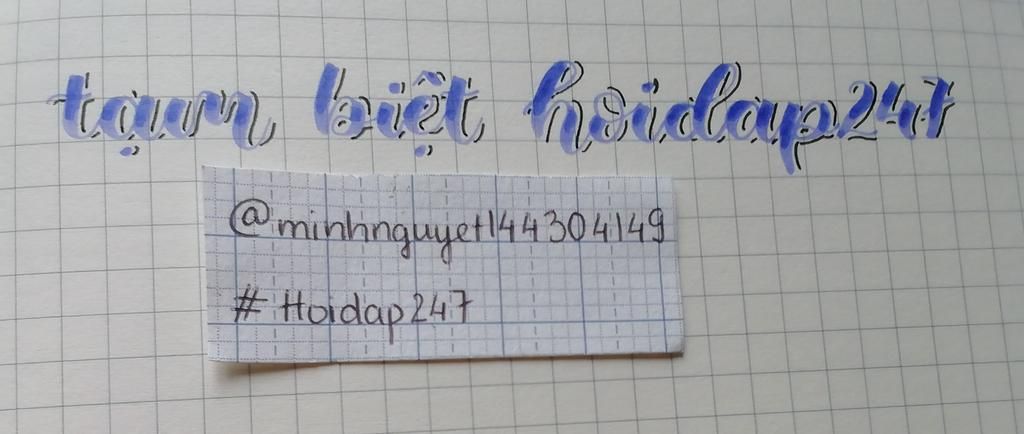 tạm biệt hoidap247
@minhnguyet144304149
# Hoidap247